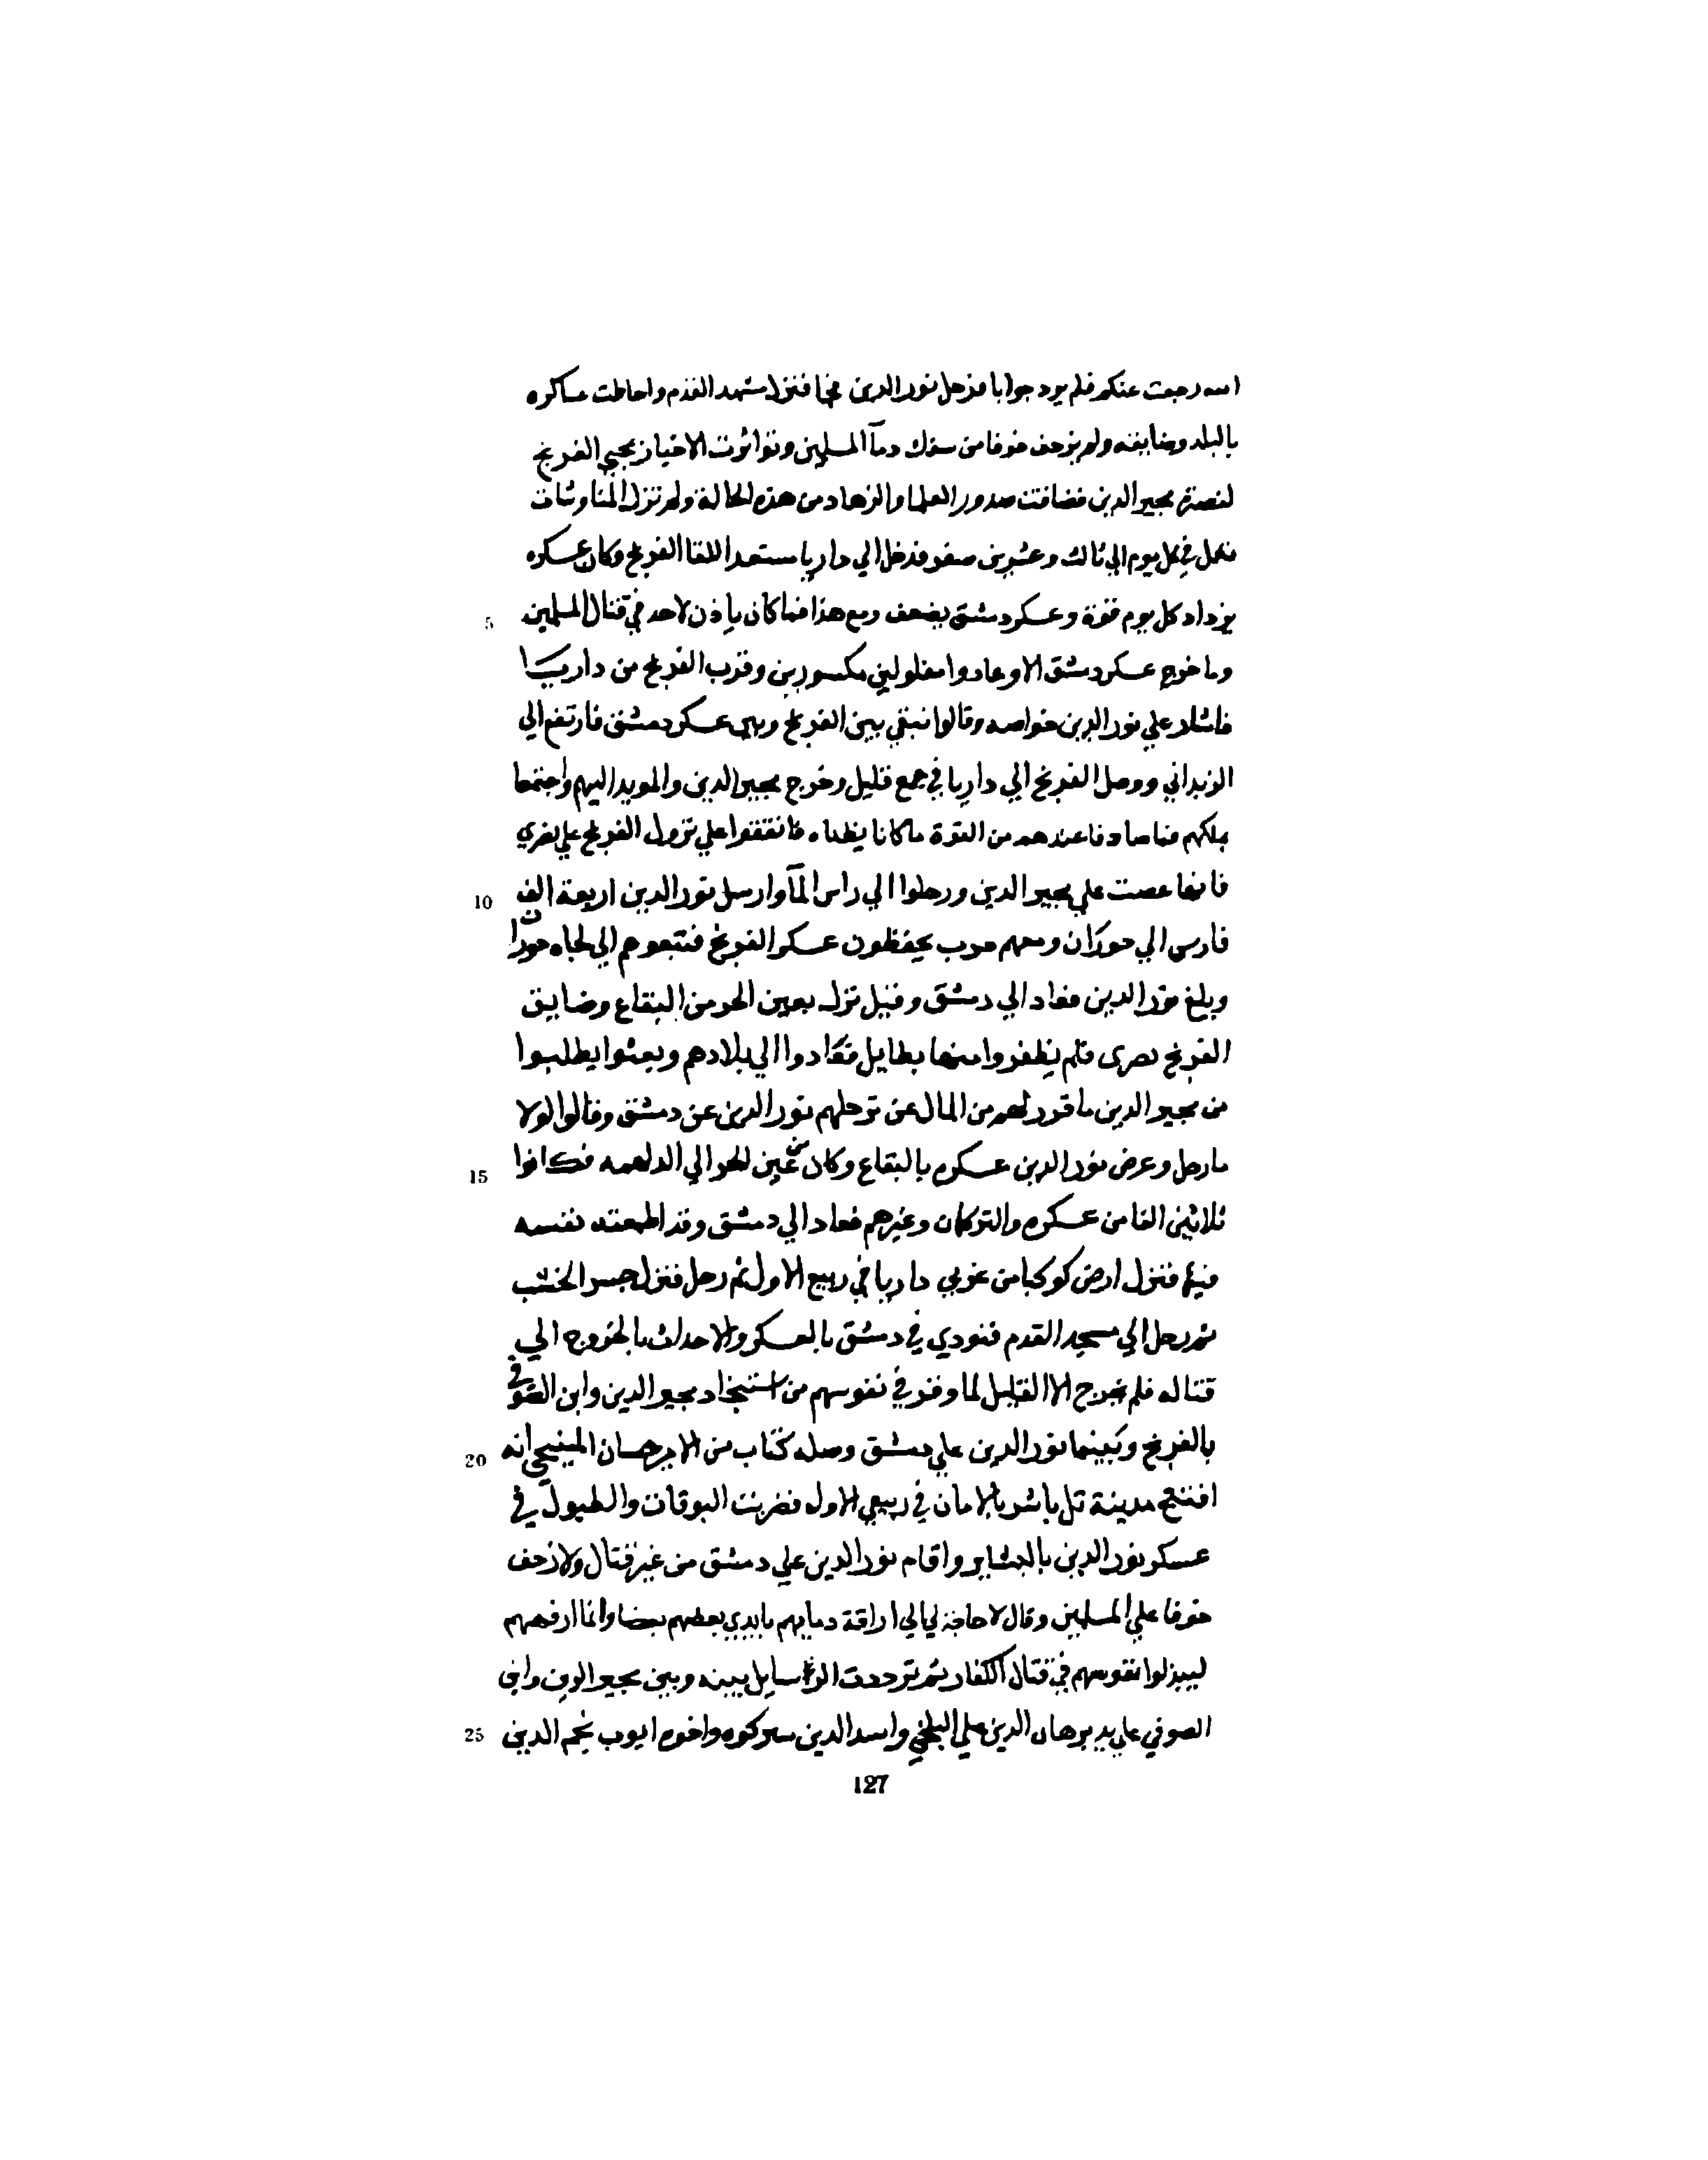 الله رجعت عنكم فلم يرد جوابا فرحل نور الدين فنزل مشهد القدم واحاطت عساكره
بالبلد وضايقه ولم يزحف خوفا من سفك دمآ المسلمين وتواترت الاخبار بمجي الفرنج
لنصرة مجير الدين فضاقت صدور العلما والزهاد من هذه الحالة ولم تزل المناوشات
تعمل في كل يوم الي ثالث وعشرين صفر فدخل الي داريا مستعدا للقا الفرنج وكان عسكره
يزداد كل يوم قوة وعسكر دمشق يضعف ومع هذا فما كان ياذن لاحد في قتال المسلمين 5
وما خرج عسكر دمشق الا وعادوا مفلولين مكسورين وقرب الفرنج من داريا
فاشار علي نور الدين خواصه وقالوا نبقي بين الفرنج وبين عسكر دمشق فارتفع الي
الزبداني ووصل الفرنج الي داريا في جمع قليل وخرج مجير الدين والمويد اليهم واجتمعا
بملكهم فما صادفا عندهم من القوة ما كانا يظناه فاتفقوا علي نزول الفرنج علي بصري
فانها عصت علي مجير الدين ورحلوا الي راس المآ وارسل نور الدين اربعة الف 10
فارس الي حوران ومعهم عرب يحفظون عسكر الفرنج فتبعوهم الي لجاه حوران
وبلغ نور الدين فعاد الي دمشق وقيل نزل بعين الجر من البقاع وضايق
الفرنج بصرى فلم يظفروا منها بطايل فعادوا الي بلادهم وبعثوا يطلبوا
من مجير الدين ما قرر لهم من المال عن ترحلهم نور الدين عن دمشق وقالوا لولا
ما رحل وعرض نور الدين عسكره بالبقاع وكان من عين الجر الي الدلهميه فكانوا 15
ثلاثين الفا من عسكره والتركمان وغيرهم فعاد الي دمشق وقد اطمعته نفسه
فيها فنزل ارض كوكبا من غربي داريا في ربيع الاول ثم رحل فنزل جسر الخشب
ثم رحل الي مسجد القدم فنودي في دمشق بالعسكر والاحداث بالخروج الي
قتاله فلم يخرج الا القليل لما وقر في نفوسهم من استنجاد مجير الدين وابن الصوفي
بالفرنج وبينما نور الدين علي دمشق وصله كتاب من الامير حسان المنبجي انه 20
افتتح مدينة تل باشر بالامان في ربيع الاول فضربت البوقات والطبول في
عسكر نور الدين بالبشاير واقام نور الدين علي دمشق من غير قتال ولا زحف
خوفا علي المسلمين وقال لا حاجة لي الي اراقة دمايهم بايدي بعضهم بعضا وانما ارفههم
ليبذلوا نفوسهم في قتال الكفار ثم ترددت الرسايل بينه وبين مجير الدين وابن
الصوفي علي يد برهان الدين علي البلخي واسد الدين سيركوه واخوه ايوب نجم الدين 25
127